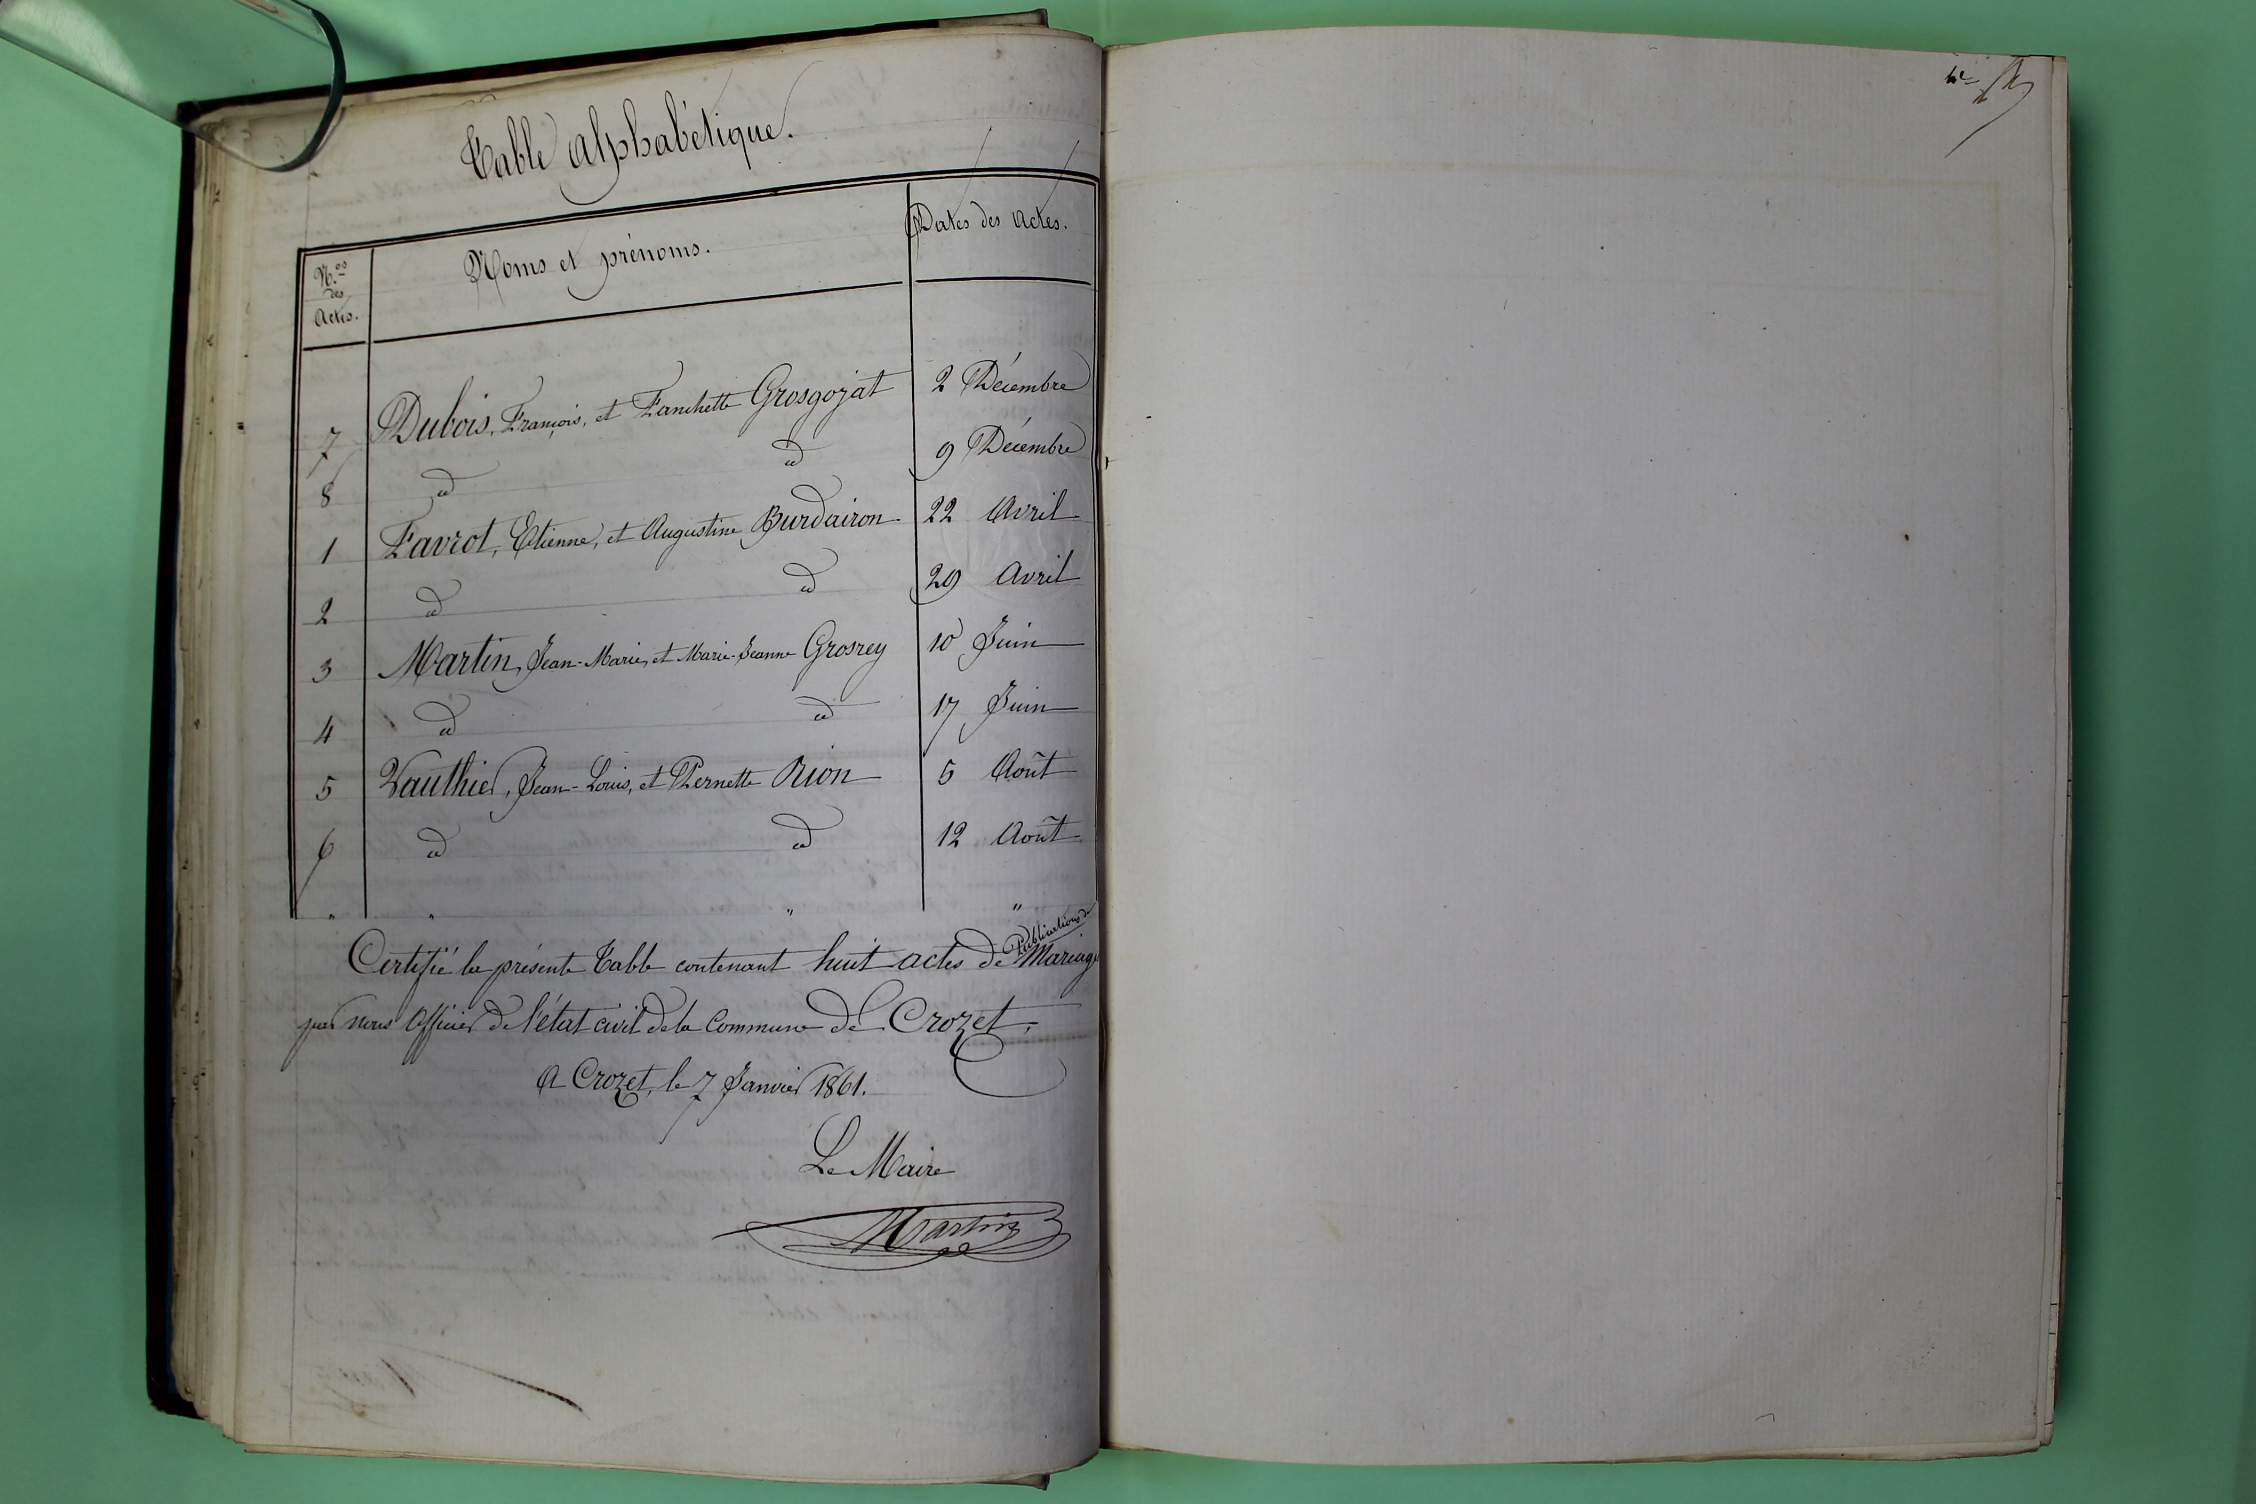 Table alphabétique.
N.os des Actes. Noms et prénoms. Dates des Actes.
7 Dubois, François, et Fanchette Grosgojat 2 Décembre
8 d d 9 Décembre
1 Favrot, Etienne, et Augustine Burdairon 22 Avril
2 d d 29 Avril
3 Martin, Jean-Marie, et Marie-Jeanne Grosrey 10 Juin
4 d d 17 Juin
5 Vauthier, Jean-Louis, et Pernette Rion 5 Août
6 d d 12 Août
" " " "
Certifié la présente Table contenant huit actes de Publications de Mariage
par nous Officier de l'état civil de la Commune de Crozet.
A Crozet, le 7 Janvier 1861.
Le Maire
Martin